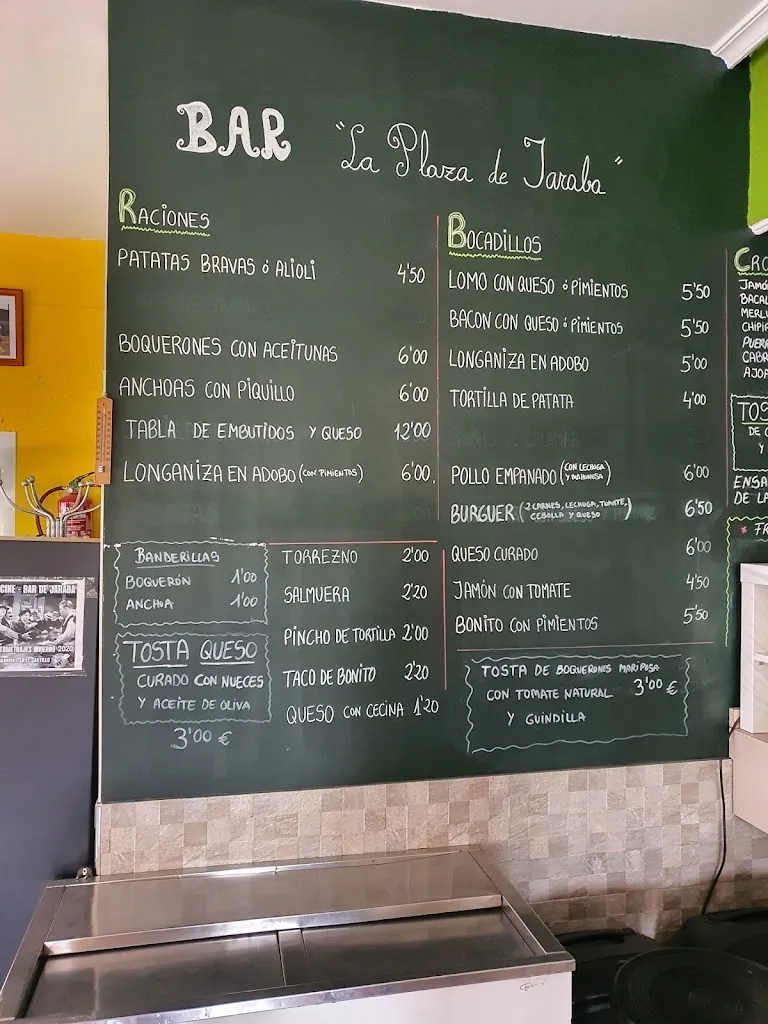 BAR "La Plaza de Jaraba"
RACIONES
PATATAS BRAVAS ó ALIOLI 4'50
BOQUERONES CON ACEITUNAS 6'00
ANCHOAS CON PIQUILLO 6'00
TABLA DE EMBUTIDOS Y QUESO 12'00
LONGANIZA EN ADOBO (CON PIMIENTOS) 6'00
BANDERILLAS
BOQUERÓN 1'00
ANCHOA 1'00
TOSTA QUESO
CURADO CON NUECES
Y ACEITE DE OLIVA
3'00 €
TORREZNO 2'00
SALMUERA 2'20
PINCHO DE TORTILLA 2'00
TACO DE BONITO 2'20
QUESO CON CECINA 1'20
BOCADILLOS
LOMO CON QUESO ó PIMIENTOS 5'50
BACON CON QUESO ó PIMIENTOS 5'50
LONGANIZA EN ADOBO 5'00
TORTILLA DE PATATA 4'00
POLLO EMPANADO (CON LECHUGA Y MAHONESA) 6'00
BURGUER (2 CARNES, LECHUGA, TOMATE, CEBOLLA Y QUESO) 6'50
QUESO CURADO 6'00
JAMÓN CON TOMATE 4'50
BONITO CON PIMIENTOS 5'50
TOSTA DE BOQUERONES MARIPOSA
CON TOMATE NATURAL 3'00 €
Y GUINDILLA
CRO
JAMÓ
BACAL
MERLU
CHIPI
PUERR
CABR
AJOA
TOS
DE
Y
ENSA
DE LA
FR
CINE - BAR DE JARABA